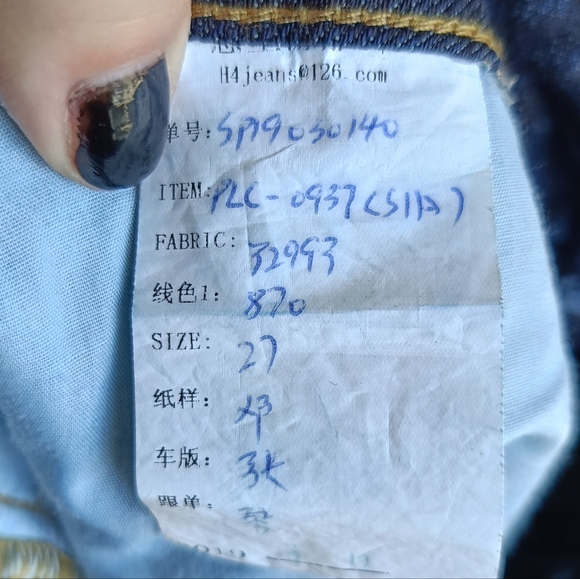 H4jeans@126.com
单号: SP19030140
ITEM: PLC-0937(S11A)
FABRIC: J2993
线色1: 870
SIZE: 27
纸样: 邓
车版: 张
跟单: